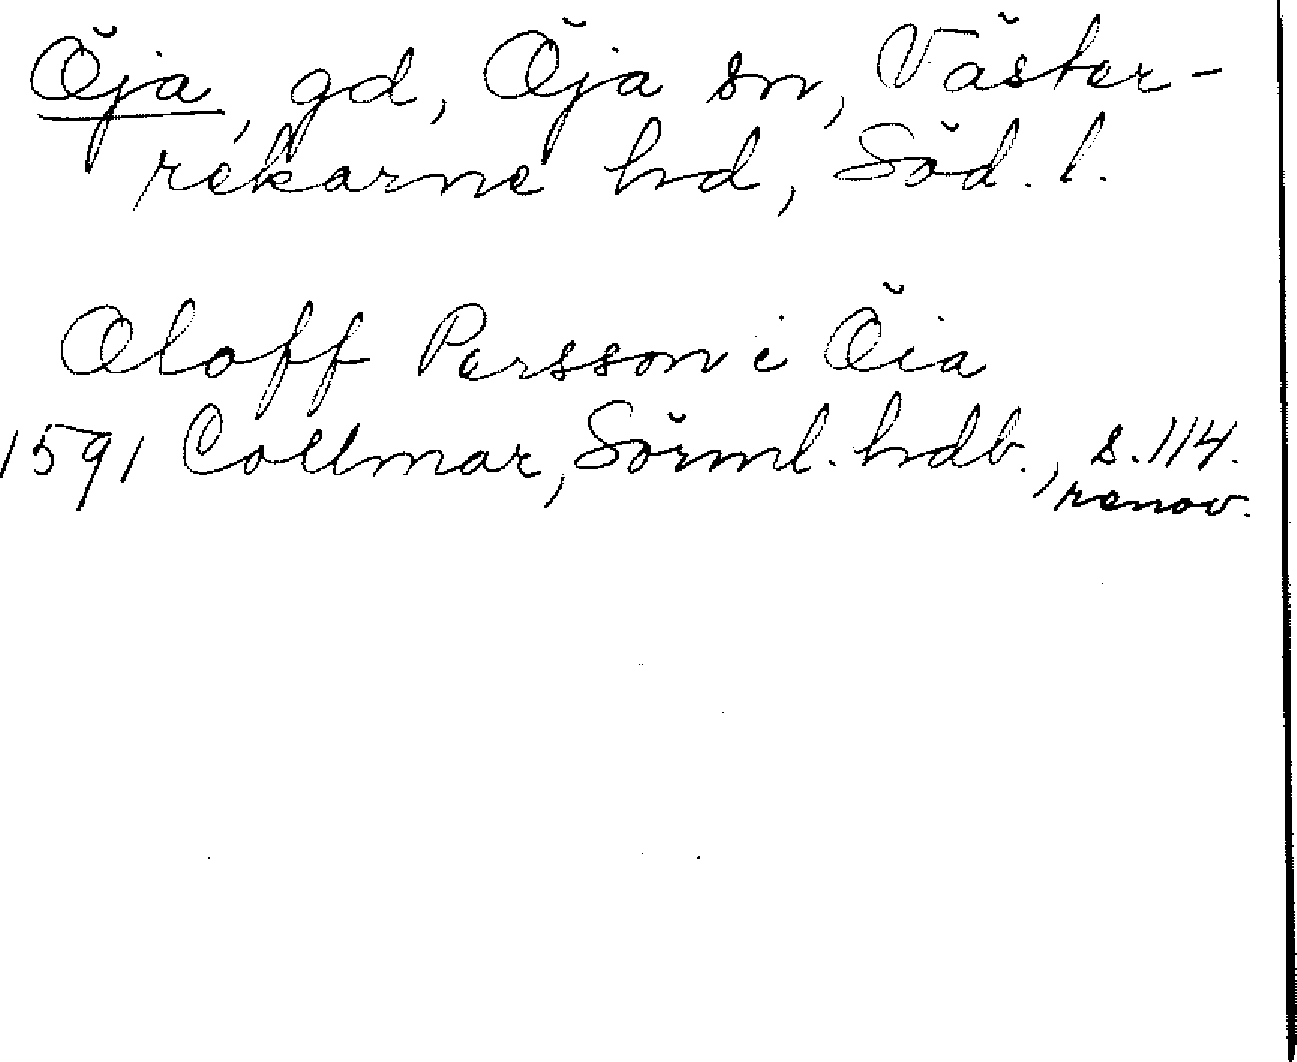 Öja, gd, Öja sn, Väster-
rekarne hd, Söd. l.
Oloff Persson i Öia
1591 Collmar, Sörml. hdb., s. 114.
renov.